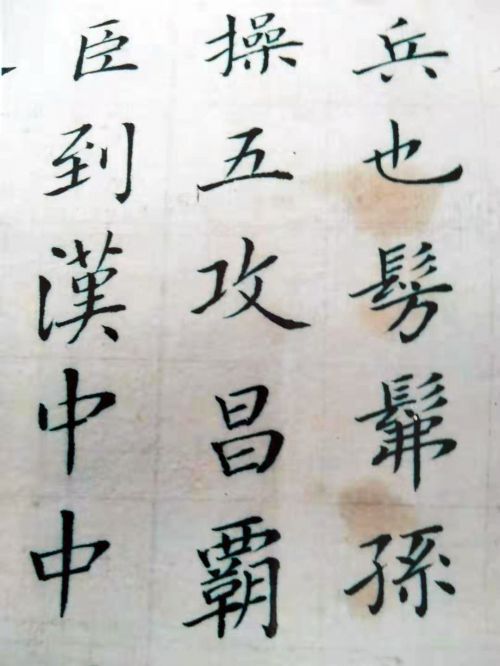 兵也髣髴孫
操五攻昌霸
臣到漢中中